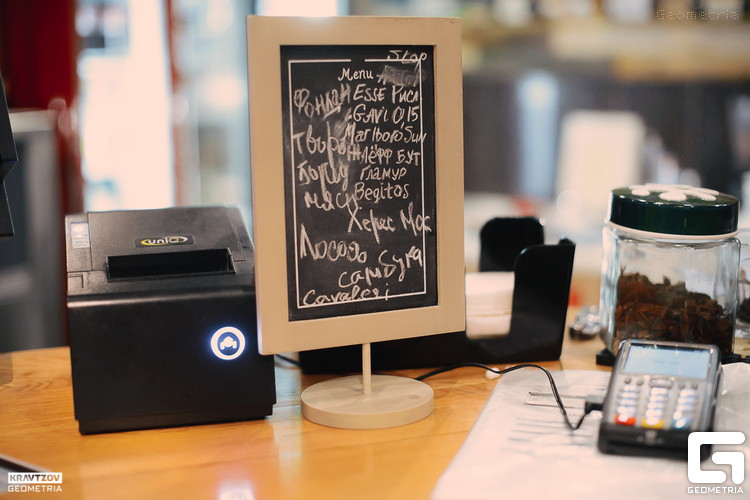 Geometria
Stop
Menu
Фондан
ESSE Рисл
GAVi 0,15
Творо
Marlboro Sun
Жлёфф БУТ
Борщ
Гламур
мясн
Begitos
Херес Мос
Лосось
самбука
Cavalesi
uniq
KRAVTZOV
GEOMETRIA
GEOMETRIA